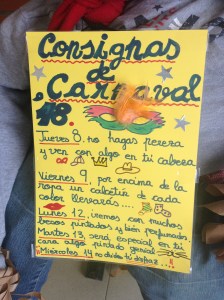 Consignas
de
Carnaval
18.
Jueves 8, no hagas pereza
y ven con algo en tu cabeza
Viernes 9, por encima de la
ropa un calcetín de cada
color llevarás....
Lunes 12, iremos con muchos
besos pintados y bien perfumados.
Martes 13, será especial en tu
cara algo pinta genial
Miércoles 14 no olvides tu disfraz...!